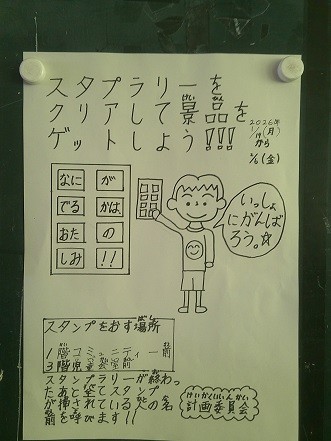 スタプラリーを
クリアして景品を
ゲットしよう!!!
2026年
1/19(月)
から
2/6(金)
なに が
でる かは
おた の
しみ !!
いっしょ
にがんば
ろう。☆
スタンプをおす場所
1階コミュニティー前
3階児童会室前
スタンプラリーが終わっ
たあと
が押されている人の名
前を呼びます!!
けいかくいいんかい
計画委員会